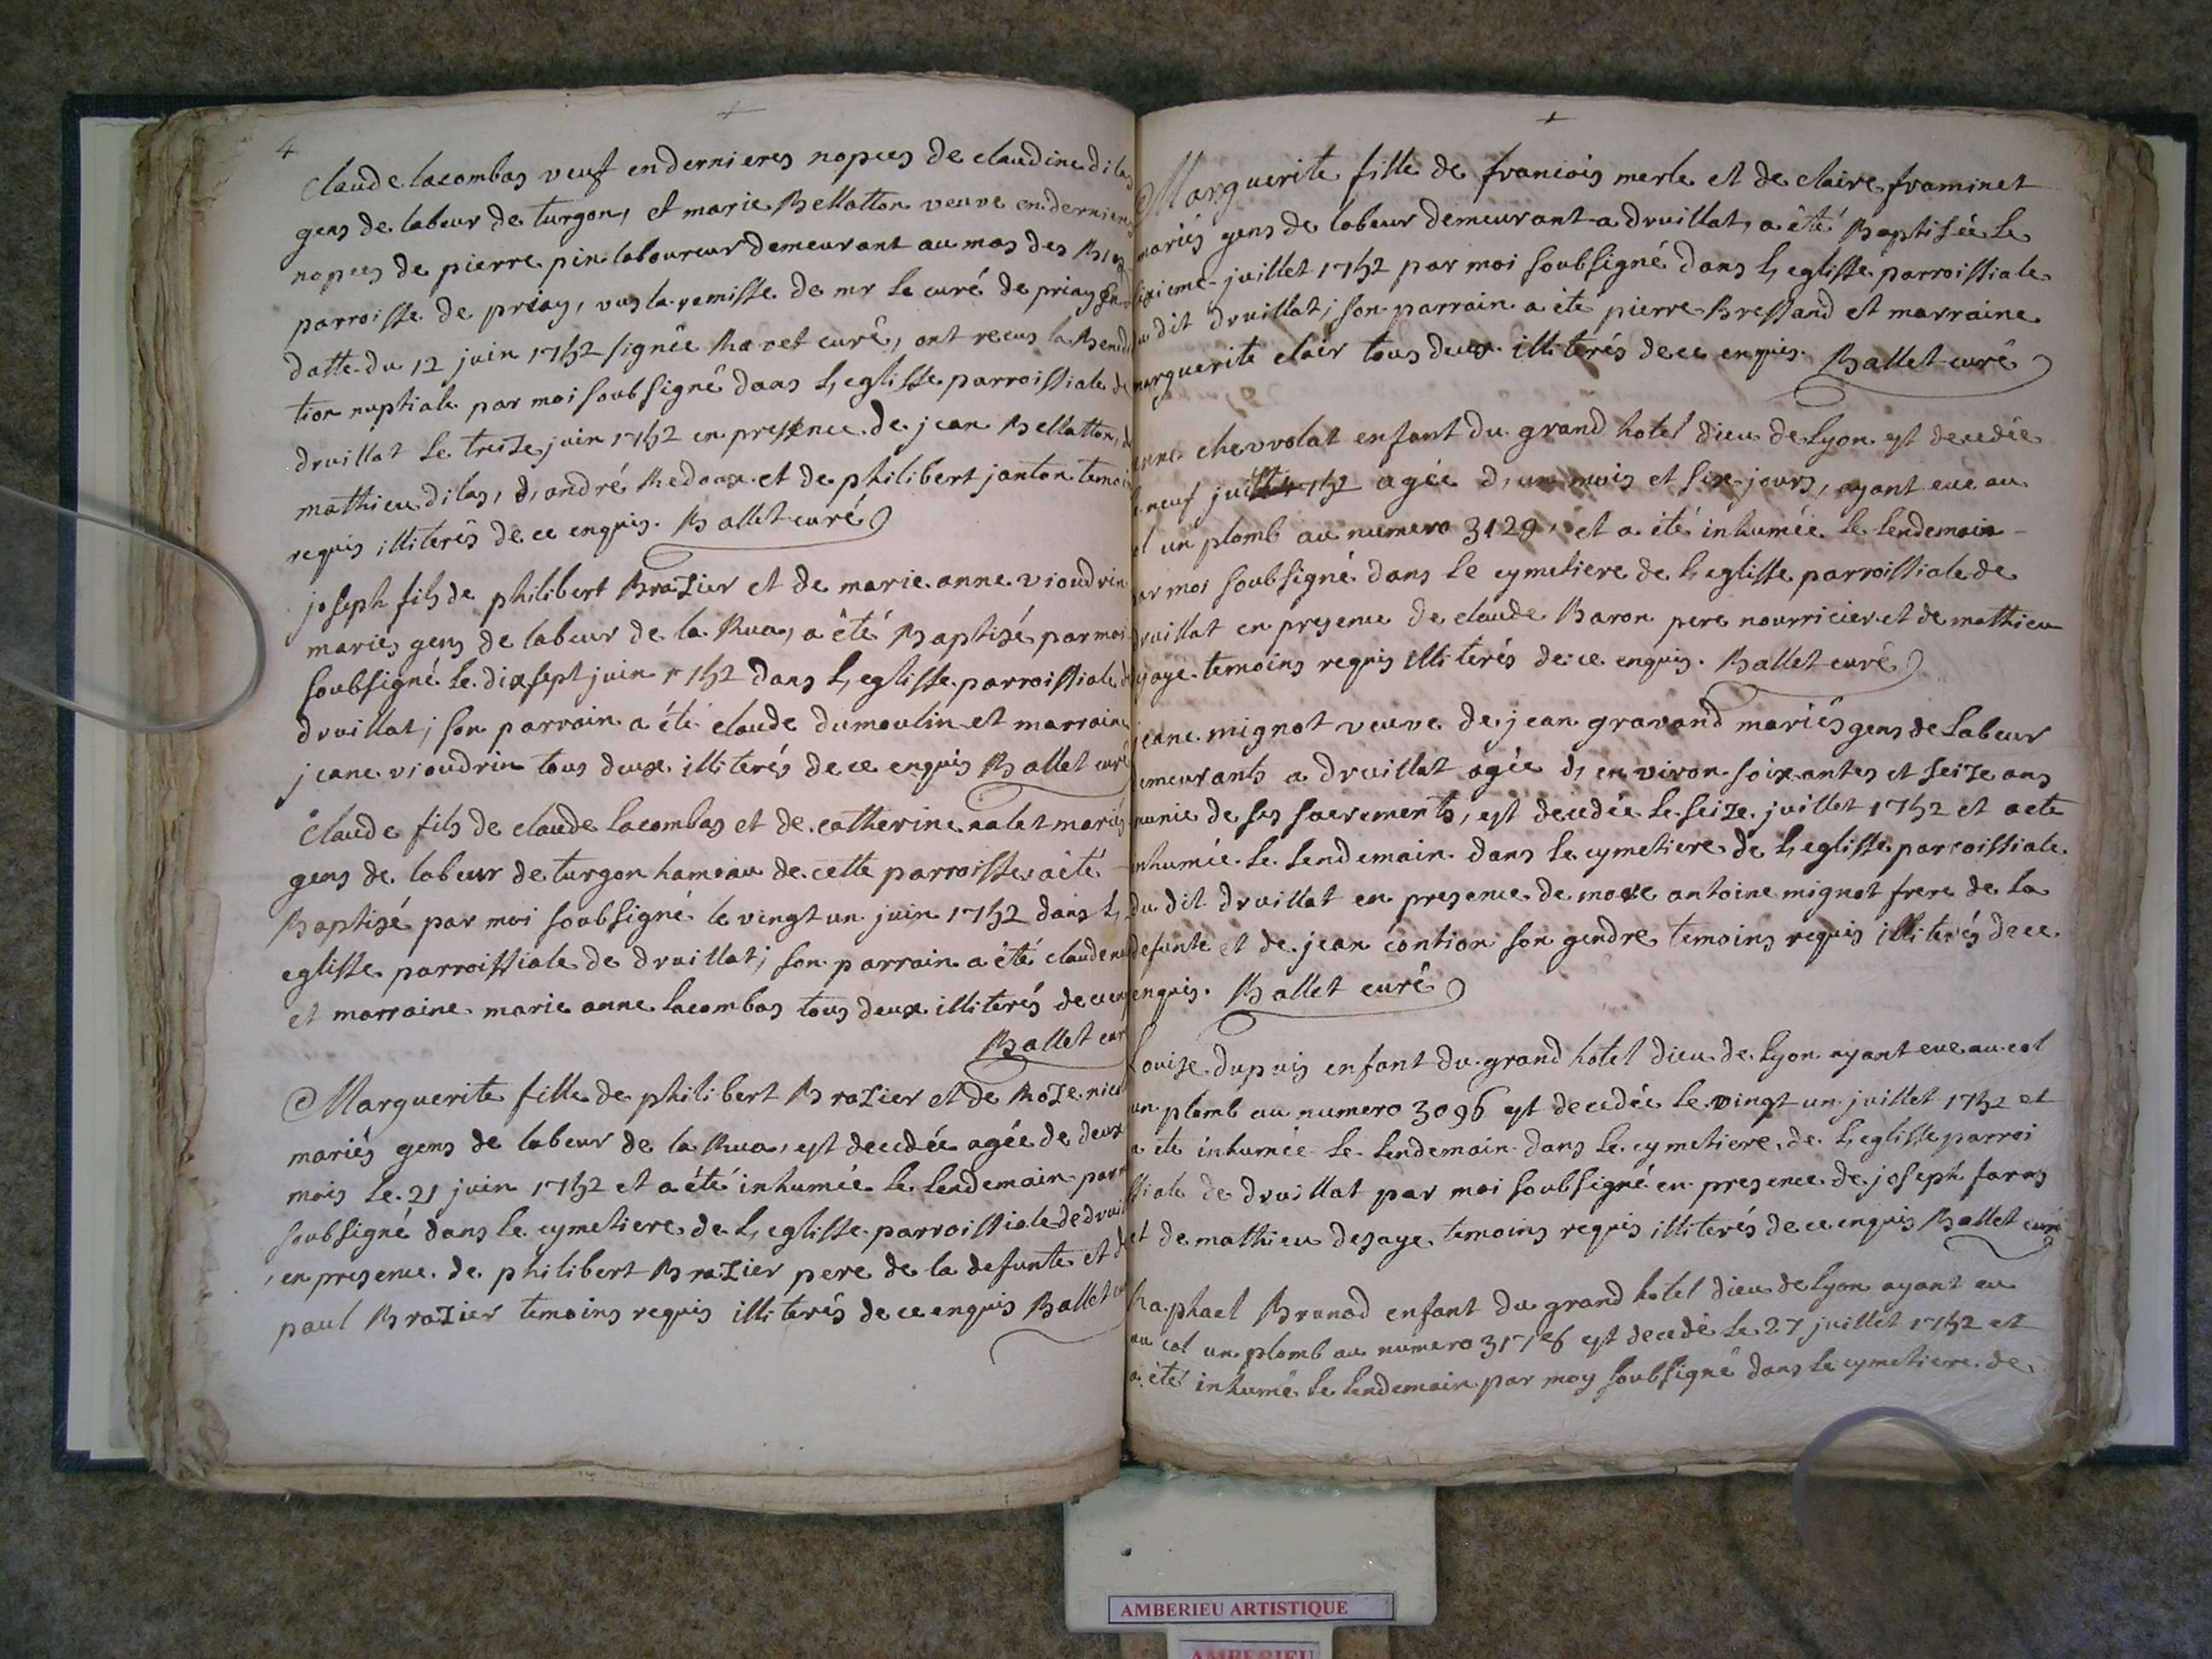 4
claude lacombas veuf en dernieres nopces de claudine dilas
gens de labeur de turgon, et marie Bellatton veuve en dernieres
nopces de pierre pin laboureur demeurant au mas des
parroisse de priay, vus la remisse de mr le curé de priay en
datte du 12 juin 1752 signée Ravet curé, ont recus la Benedi
tion nuptiale par moi soubsigné dans l, eglisse parroissiale de
druillat le treize juin 1752 en presence de jean Bellatton, de
mathieu dilas, d, andré Redoux et de philibert janton temoins
requis illiterés de ce enquis. Ballet curé
joseph fils de philibert Brazier et de marie anne vioudrin
mariés gens de labeur de la Rua, a été Baptisé par moi
soubsigné le dix sept juin 1752 dans l, eglisse parroissiale de
druillat; son parrain a été claude dumoulin et marraine
jeane vioudrin tous deux illiterés de ce enquis Ballet curé
claude fils de claude lacombas et de catherine nalet mariés
gens de labeur de turgon hameau de cette parroisse, a été
Baptisé par moi soubsigné le vingt un juin 1752 dans l,
eglisse parroissiale de druillat; son parrain a été claude
et marraine marie anne lacombas tous deux illiterés de ce enq
Ballet cur
Marguerite fille de philibert Brazier et de Roze
mariés gens de labeur de la Rua, est decedée agée de deux
mois le 21 juin 1752 et a été inhumée le lendemain par
soubsigné dans le cymetiere de l, eglisse parroissiale de druil
, en presence de philibert Brazier pere de la defunte et de
paul Brazier temoins requis illiterés de ce enquis Ballet cu
Marguerite fille de franciois merle et de claire framinet
mariés gens de labeur demeurant a druillat, a été Baptisée le
sixieme juillet 1752 par moi soubsigné dans l, eglisse parroissiale
du dit druillat; son parrain a été pierre Bressand et marraine
marguerite clair tous deux illiterés de ce enquis. Ballet curé
anne chevrolat enfant du grand hotel dieu de lyon est decedée
le neuf juillet 1752 agée d, un mois et six jours, ayant eue au
col un plomb au numero 3129, et a été inhumée le lendemain
par moi soubsigné dans le cymetiere de l, eglisse parroissiale de
druillat en presence de claude Baron pere nourricier et de mathieu
temoins requis illiterés de ce enquis. Ballet curé
jeane mignot veuve de jean gravand mariés gens de labeur
demeurants a druillat agée d, environ soixantes et seize ans
munie de ses sacrements, est decedée le seize juillet 1752 et a été
inhumée le lendemain dans le cymetiere de l, eglisse parroissiale
du dit druillat en presence de marc antoine mignot frere de la
defunte et de jean contion son gendre temoins requis illiterés de ce
enquis. Ballet curé
Louise dupuis enfant du grand hotel dieu de lyon ayant eue au col
un plomb au numero 3096 est decedée le vingt un juillet 1752 et
a été inhumée le lendemain dans le cymetiere de l, eglisse parroi
ssiale de druillat par moi soubsigné en presence de joseph faras
et de mathieu desaye temoins requis illiterés de ce enquis Ballet curé
Raphael Brunod enfant du grand hotel dieu de lyon ayant eu
au col un plomb au numero est decedé le 27 juillet 1752 et
a été inhumé le lendemain par moy soubsigné dans le cymetiere de
AMBERIEU ARTISTIQUE
AMBERIEU